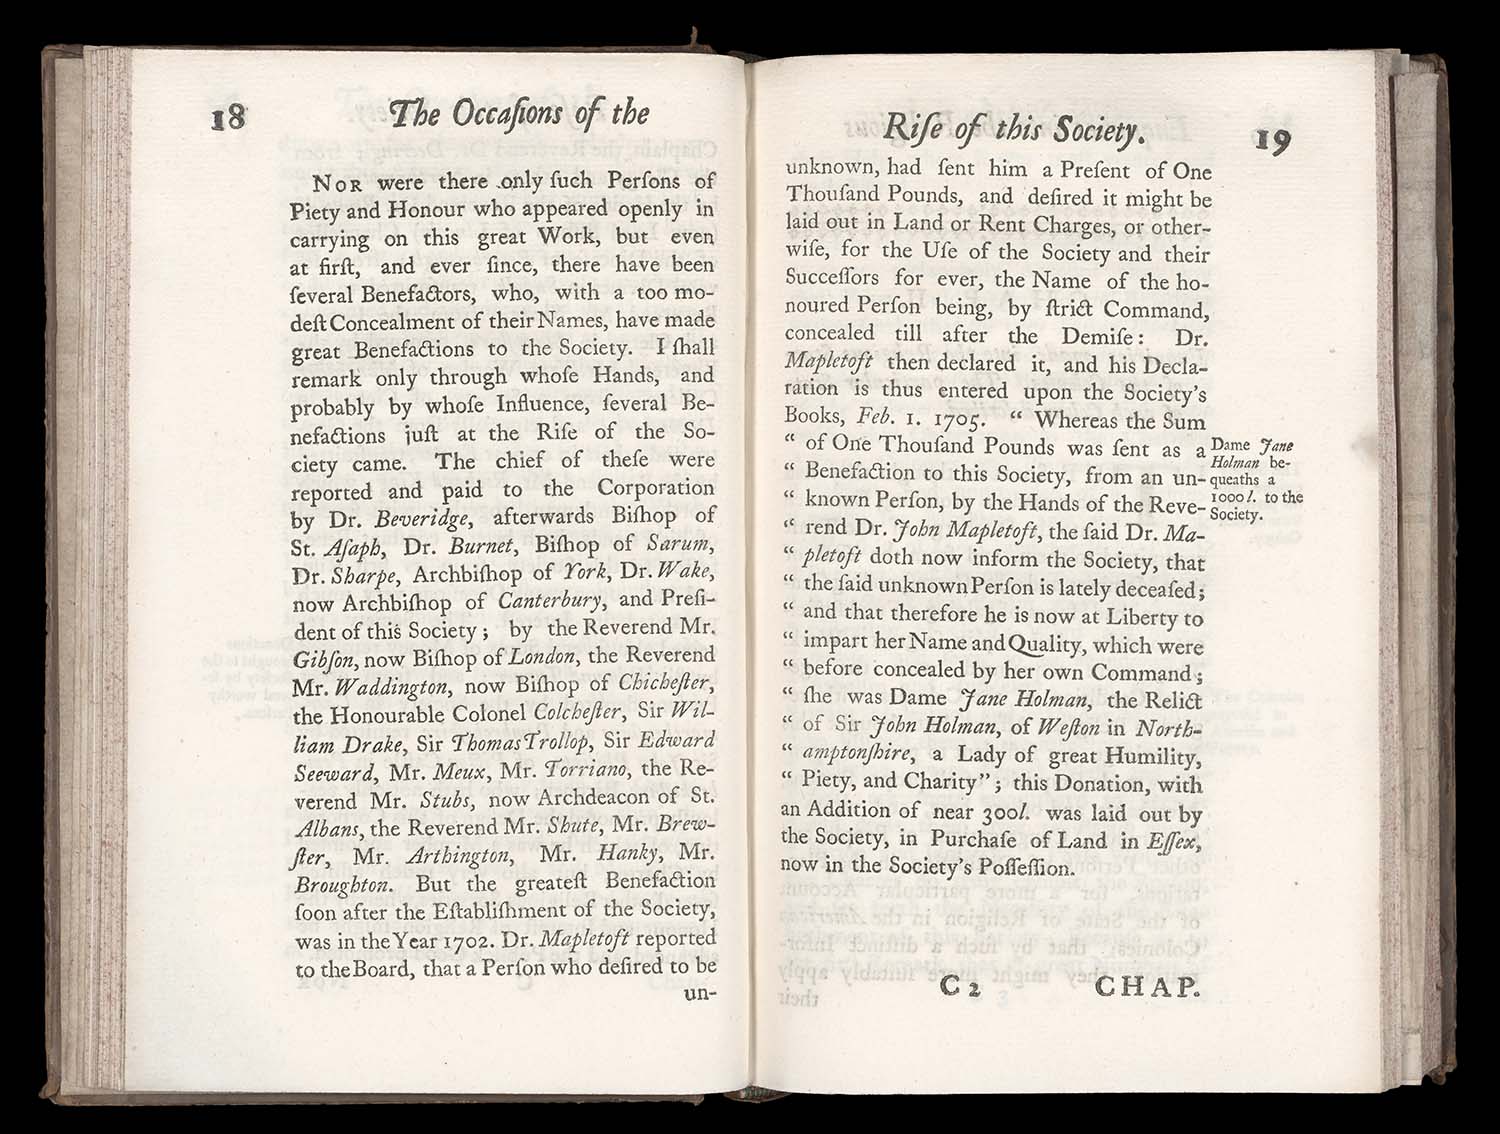 18
The Occaſions of the
NOR were there only ſuch Perſons of
Piety and Honour who appeared openly in
carrying on this great Work, but even
at firſt, and ever ſince, there have been
ſeveral Benefactors, who, with a too mo-
deſt Concealment of their Names, have made
great Benefactions to the Society. I ſhall
remark only through whoſe Hands, and
probably by whoſe Influence, ſeveral Be-
nefactions juſt at the Riſe of the So-
ciety came. The chief of theſe were
reported and paid to the Corporation
by Dr. Beveridge, afterwards Biſhop of
St. Aſaph, Dr. Burnet, Biſhop of Sarum,
Dr. Sharpe, Archbiſhop of York, Dr. Wake,
now Archbiſhop of Canterbury, and Preſi-
dent of this Society; by the Reverend Mr.
Gibſon, now Biſhop of London, the Reverend
Mr. Waddington, now Biſhop of Chicheſter,
the Honourable Colonel Colcheſter, Sir Wil-
liam Drake, Sir Thomas Trollop, Sir Edward
Seeward, Mr. Meux, Mr. Torriano, the Re-
verend Mr. Stubs, now Archdeacon of St.
Albans, the Reverend Mr. Shute, Mr. Brew-
ſter, Mr. Arthington, Mr. Hanky, Mr.
Broughton. But the greateſt Benefaction
ſoon after the Eſtabliſhment of the Society,
was in the Year 1702. Dr. Mapletoft reported
to the Board, that a Perſon who deſired to be
un-
Riſe of this Society.
19
unknown, had ſent him a Preſent of One
Thouſand Pounds, and deſired it might be
laid out in Land or Rent Charges, or other-
wiſe, for the Uſe of the Society and their
Succeſſors for ever, the Name of the ho-
noured Perſon being, by ſtrict Command,
concealed till after the Demiſe: Dr.
Mapletoft then declared it, and his Decla-
ration is thus entered upon the Society's
Books, Feb. 1. 1705. “ Whereas the Sum
“ of One Thouſand Pounds was ſent as a
“ Benefaction to this Society, from an un-
“ known Perſon, by the Hands of the Reve-
“ rend Dr. John Mapletoft, the ſaid Dr. Ma-
“ pletoft doth now inform the Society, that
“ the ſaid unknown Perſon is lately deceaſed;
“ and that therefore he is now at Liberty to
“ impart her Name and Quality, which were
“ before concealed by her own Command;
“ ſhe was Dame Jane Holman, the Relict
“ of Sir John Holman, of Weſton in North-
“ amptonſhire, a Lady of great Humility,
“ Piety, and Charity”; this Donation, with
an Addition of near 300l. was laid out by
the Society, in Purchaſe of Land in Eſſex,
now in the Society's Poſſeſſion.
Dame Jane
Holman be-
queaths a
1000l. to the
Society.
C 2
CHAP.